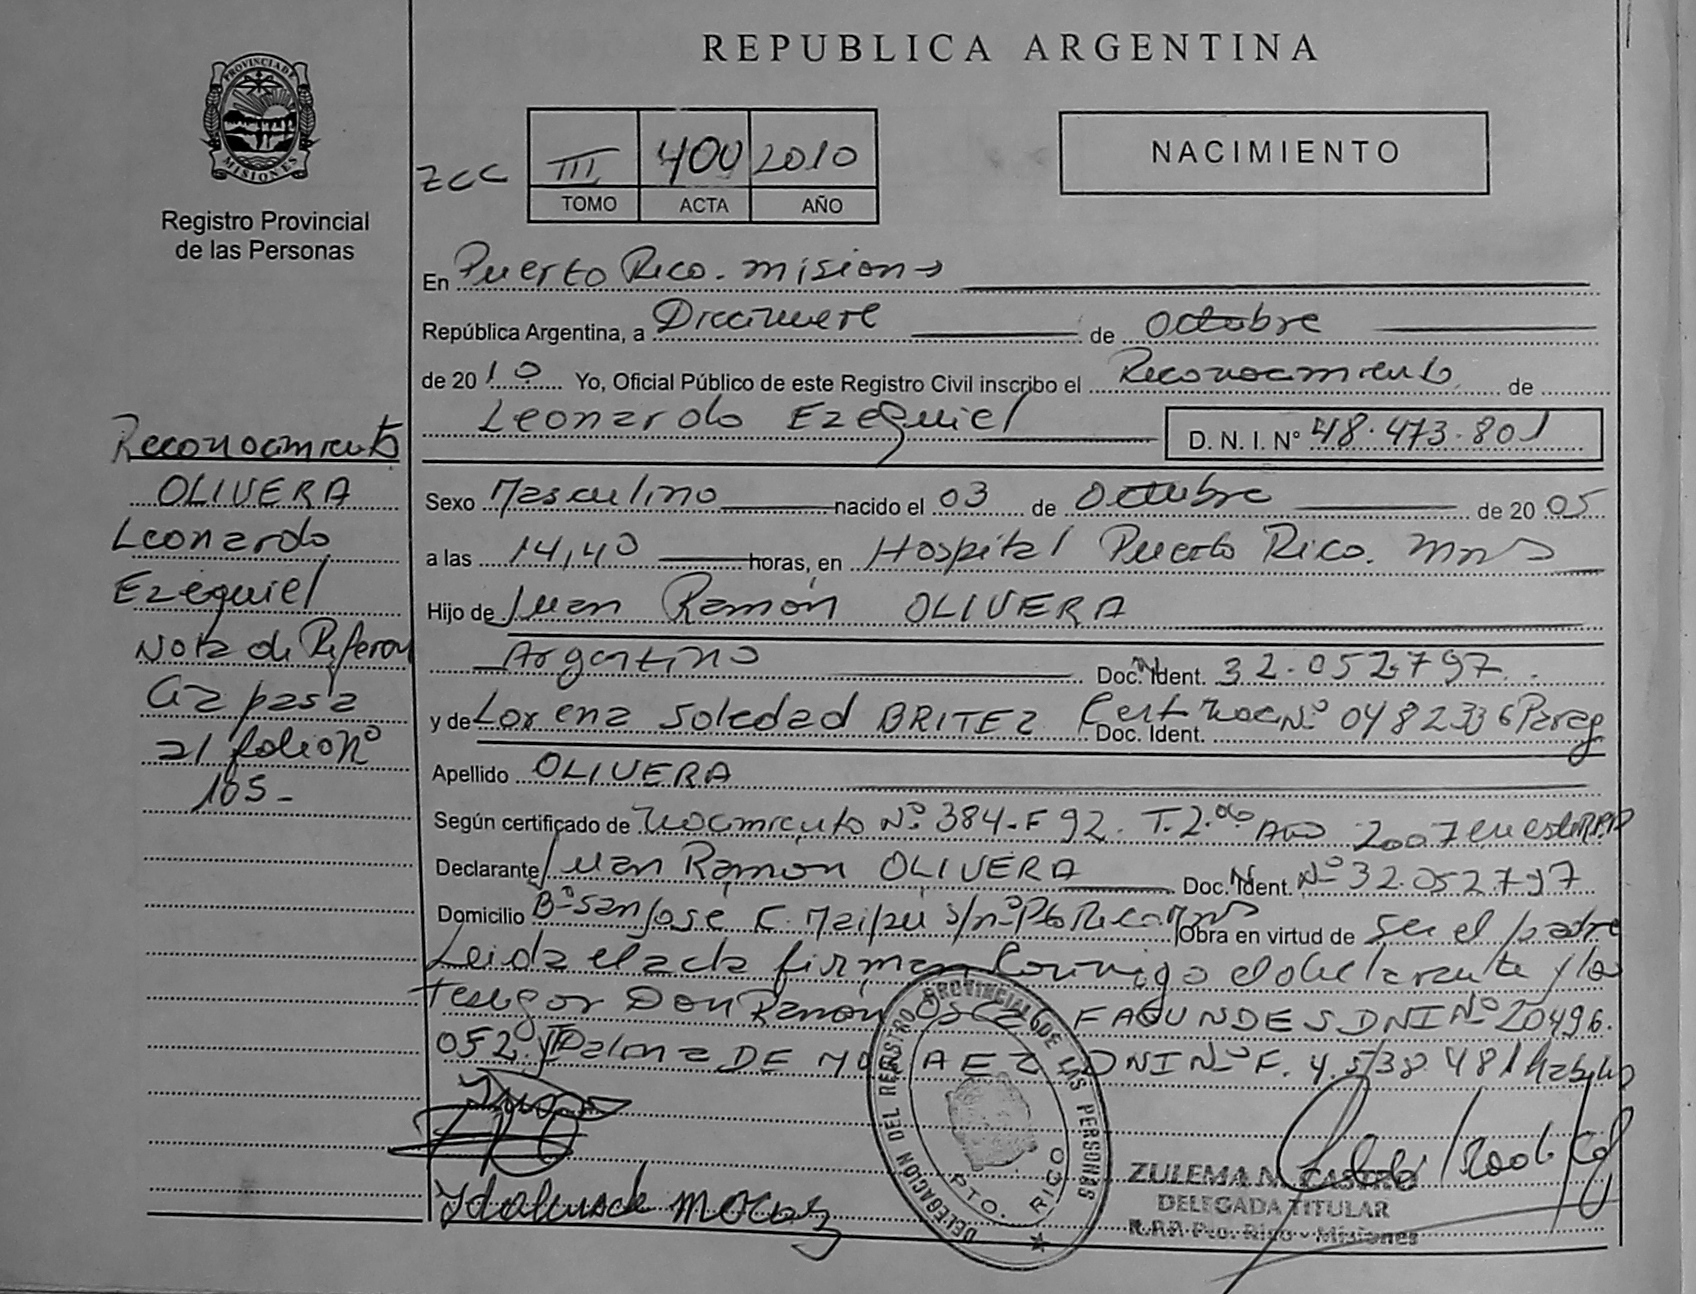 REPUBLICA ARGENTINA
PROVINCIA DE MISIONES
Registro Provincial
de las Personas
III 400 2010
TOMO ACTA AÑO
NACIMIENTO
En Puerto Rico. Misiones
República Argentina, a Diecinueve de Octubre
de 2010 Yo, Oficial Público de este Registro Civil inscribo el Reconocimiento de
Leonardo Ezequiel D. N. I. Nº 48.473.801
Sexo Masculino nacido el 03 de Octubre de 2005
a las 14,40 horas, en Hospital Puerto Rico. Mnes
Hijo de Juan Ramón OLIVERA
Argentino Doc. Ident. 32.052.797
y de Lorena Soledad BRITEZ Cert Nac Nº 0482336 Parag
Doc. Ident.
Apellido OLIVERA
Según certificado de Nacimiento Nº 384-F 92. T. 2.do Año 2007 en este RPP
Declarante Juan Ramón OLIVERA Doc. Ident. Nº 32.052.797
Domicilio Bº San José C. Maipú s/nº Pto Rico Mnes Obra en virtud de ser el padre
Leida el acta firman conmigo el declarante y los
testigos Don Ramón Oscar FAGUNDES DNI Nº 20496.
052. Y DE DNI Nº F. 4.538481
Reconocimiento
OLIVERA
Leonardo
Ezequiel
Nota de Referen
cia pasa
al folio nº
105-
DELEGACION DEL REGISTRO PROVINCIAL DE LAS PERSONAS
PTO. RICO
ZULEMA N. CASTRO
DELEGADA TITULAR
R.P.P. Pto. Rico - Misiones